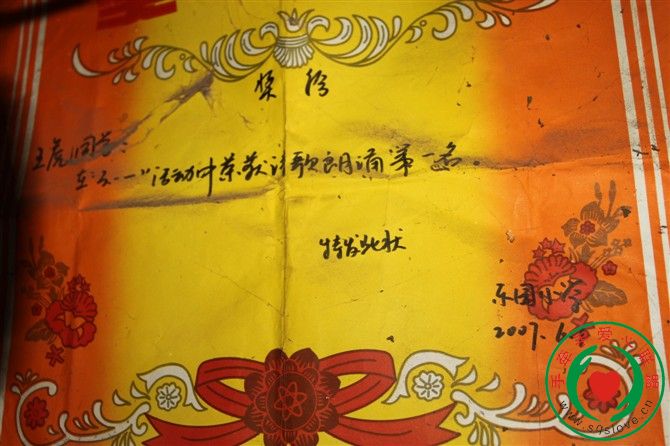 奖给
王虎同学:
在"六·一"活动中荣获诗歌朗诵第一名。
特发此状
乐园小学
2007.6.
www.sqslove.cn